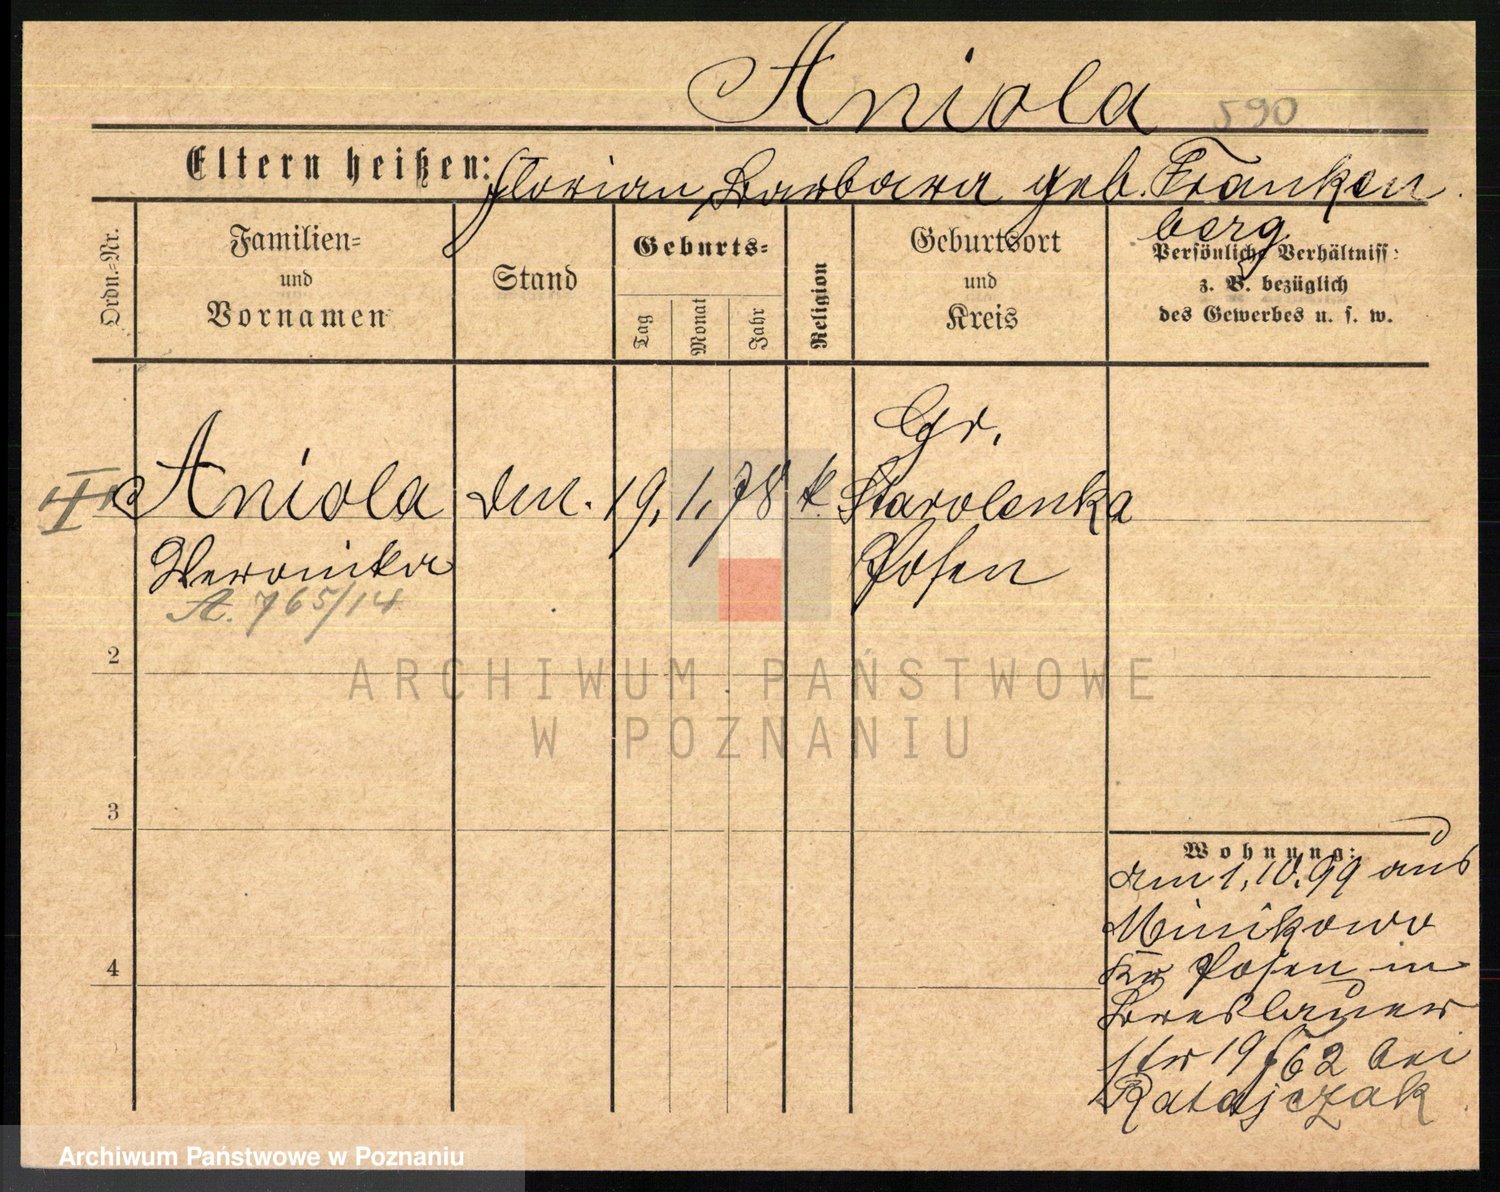 Aniola 590
Eltern heißen: Florian, Barbara geb. Franken
berg
Ordn.-Nr.
Familien-
und
Vornamen
Stand
Geburts-
Tag
Monat
Jahr
Religion
Geburtsort
und
Kreis
Persönliche Verhältniss:
z. B. bezüglich
des Gewerbes u. s. w.
Gr.
Aniola 19. 1. 78 k. Starolenka
Veronika Posen
A. 765/14
2
3
4
ARCHIWUM PAŃSTWOWE
W POZNANIU
Wohnung:
am 1.10.99 aus
Minikowo
Kr Posen in
Breslauer
str 19 bei
Ratajczak
Archiwum Państwowe w Poznaniu